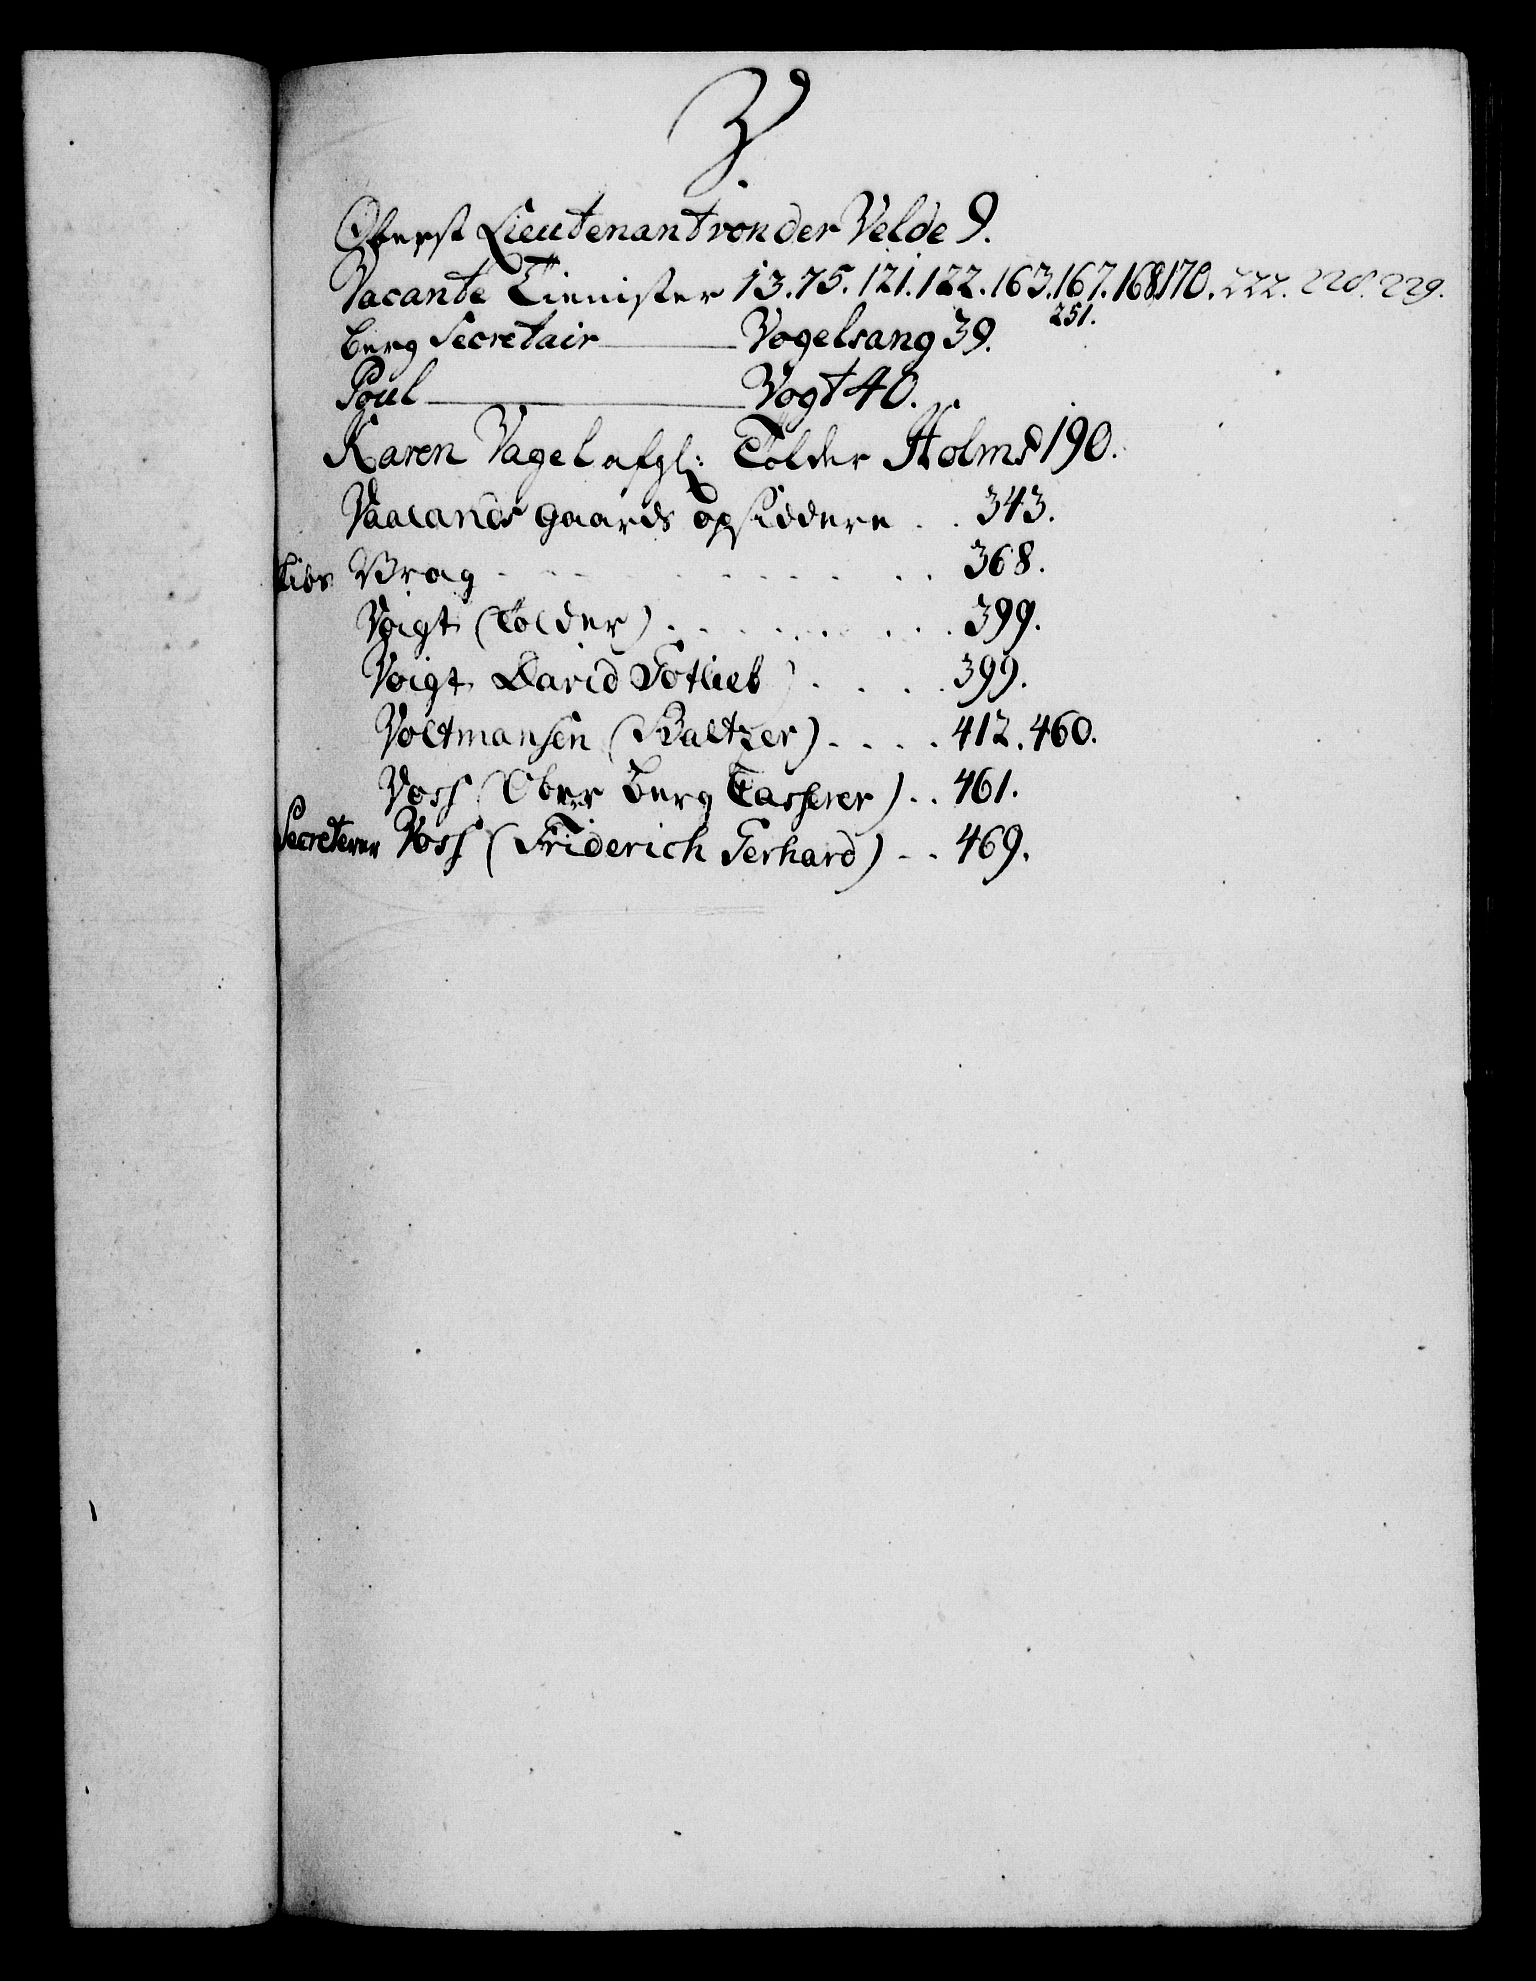 V.
Oberst Lieutenant von der Velde 9.
Vacante Tienister 13. 75. 121. 122. 163. 167. 168. 170. 222. 228. 229.
251.
Berg Secretair Vogelsang 39.
Poul Vogt 40.
Karen Vagel afgl: Tolder Holms 190.
Vaalands Gaards Opsiddere . . 343.
Brag . . . . . . . . 368.
Voigt (Tolder) . . . . . . . 399.
Voigt David Gotlieb) . . . . 399.
Voltmansen (Baltzer) . . . . 412. 460.
Voss (Ober Berg Casserer) . . 461.
Secreterer Voss (Friderich Gerhard) . . 469.